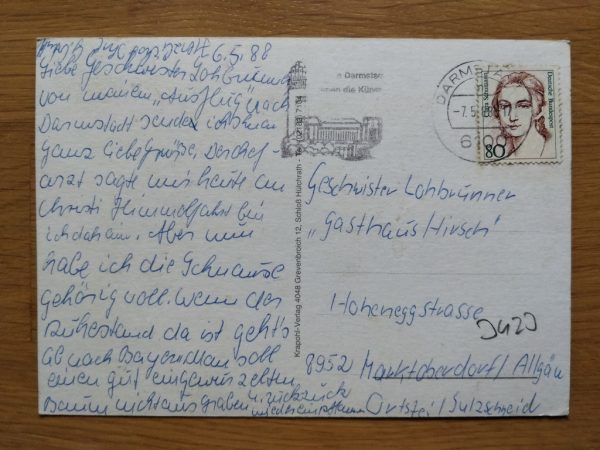 6.5.88
Liebe Geschwister Lohbrunner
von meinem „Ausflug" nach
Darmstadt sende ich Ihnen
ganz liebe Grüsse. Der Chef-
arzt sagte mir heute an
Christi Himmelfahrt bin
ich daheim. Aber nun
habe ich die Schnauze
gehörig voll. Wenn der
Ruhestand da ist geht's
ab nach Bayern. Man soll
einen gut eingewurzelten
Baum nicht ausgraben u. zurück
wieder einpflanzen
Krapohl-Verlag 4048 Grevenbroich 12, Schloß Hülchrath
e Darmstadt
die Künste
DARMSTADT
-7.5.
6100
Clara Schumann
Deutsche Bundespost
80
Geschwister Lohbrunner
„Gasthaus Hirsch"
Hoheneggstrasse
8952 Marktoberdorf/Allgäu
Ortsteil Sulzschneid